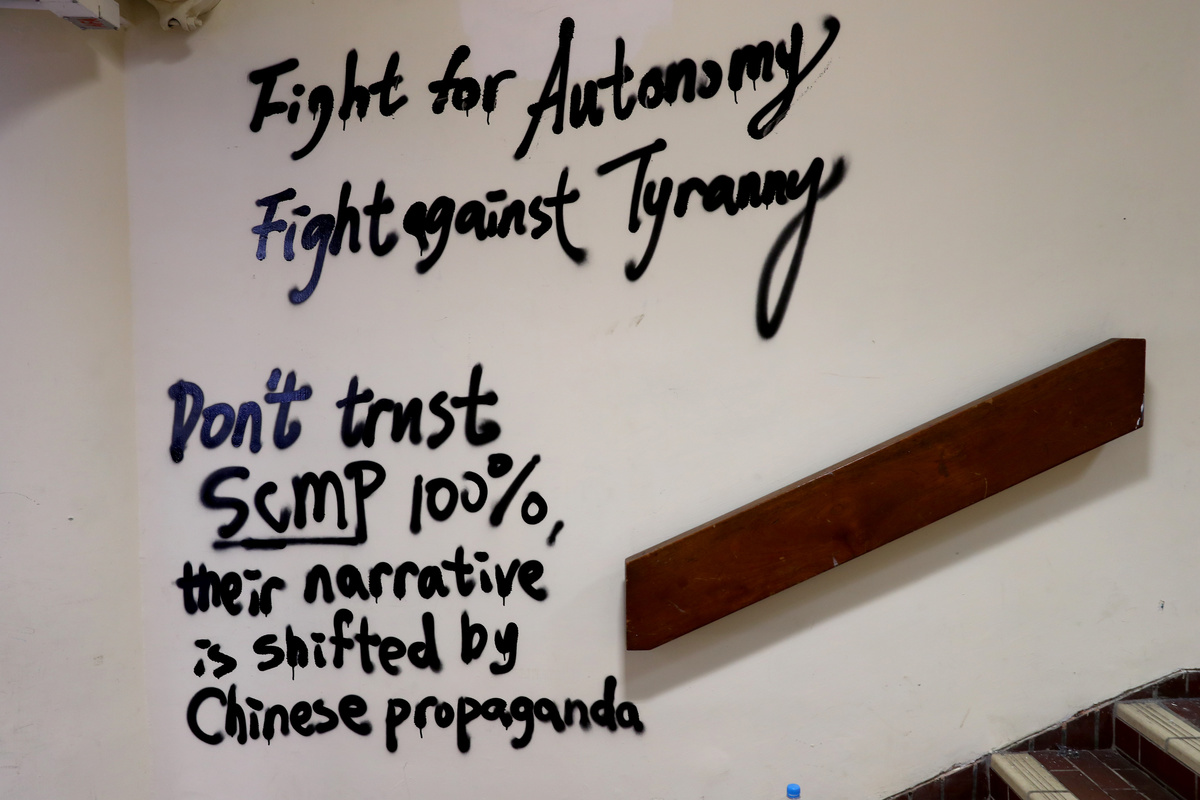 Fight for Autonomy
Fight against Tyranny
Don't trust
SCMP 100%,
their narrative
is shifted by
Chinese propaganda